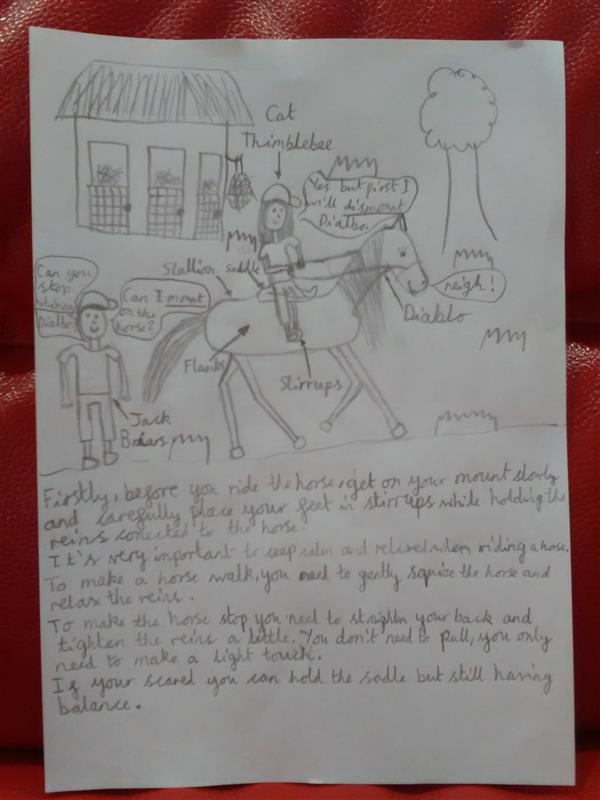 Cat
Thimblebee
Yes but first I
will dismount
Dialbo.
Stallion saddle
Can you
stop
whinny
Dialbo?
Can I mount
on the
horse?
neigh!
Diablo
Flanks
Stirrups
Jack
Briars
Firstly, before you ride the horse, get on your mount slowly
and carefully place your feet in stirrups while holding the
reins conected to the horse.
It's very important to keep calm and relaxed when riding a horse.
To make a horse walk, you need to gently sqüize the horse and
relax the reins.
To make the horse stop you need to straighten your back and
tighten the reins a little. You don't need to pull, you only
need to make a light touch.
If your scared you can hold the sadle but still having
balance.